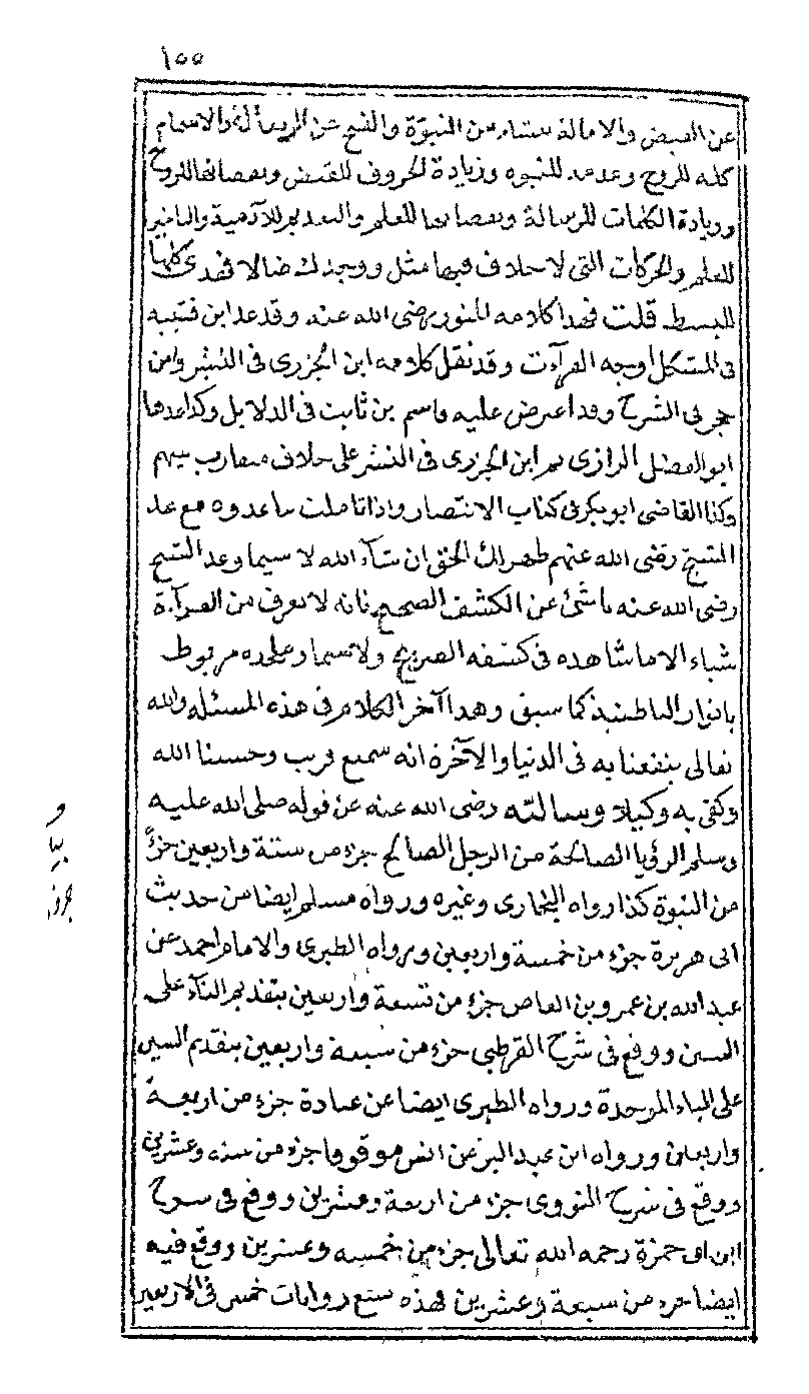 ١٥٥
عن القبض والامالة ستناء من النبوة والفتح من الرسالة والاشمام
كله للروح وعدمه للنبوه وزيادة الحروف للقبض ونقصانها للروح
وزيادة الكلمات للرسالة ونقصانها للعلم والتقديم للآدمية والتاخير
للعلم والحركات التى لا خلاف فيها مثل ووجدك ضالا فهدى كلها
للبسط قلت فهذا كلامه المنور رضى الله عنه وقد عد ابن قتيبه
فى المشكل اوجه القرآءت وقد نقل كلامه ابن الجزرى فى النشر وابن
حجر فى الشرح وقد اعترض عليه قاسم بن ثابت فى الدلايل وكذا عدها
ابو الفضل الرازى ثم ابن الجزرى فى النشر على خلاف متقارب بينهم
وكذا القاضى ابو بكر فى كتاب الانتصار واذا تاملت ما عدوه مع عد
الشيخ رضى الله عنهم ظهر لك الحق ان شآء الله لا سيما وعد الشيخ
رضى الله عنه ناشئ عن الكشف الصحيح فانه لا يعرف من القرآءة
شياء الا ما شاهده فى كشفه الصريح ولا سيما وعلى ده مربوط
بانوار الباطنية كما سبق وهذا آخر الكلام فى هذه المسئله والله
تعالى ينفعنا به فى الدنيا والآخرة انه سميع قريب وحسبنا الله
وكفى به وكيلا وسالته رضى الله عنه عن قوله صلى الله عليه
وسلم الرؤيا الصالحة من الرجل الصالح جزء من ستة واربعين جزءً
من النبوة كذا رواه البخارى وغيره ورواه مسلم ايضا من حديث
ابى هريرة جزء من خمسة واربعين ورواه الطبرى والامام احمد عن
عبد الله بن عمرو بن العاص جزء من تسعة واربعين بتقديم التآء على
السين ووقع فى شرح القرطبى جزء من سبعة واربعين بتقديم السين
على الباء الموحدة ورواه الطبرى ايضا عن عبادة جزء من اربعة
واربعين ورواه ابن عبد البر عن انس موقوفا جزء من سته وعشرين
ووقع فى شرح النووى جزء من اربعة وعشرين ووقع فى شرح
ابن ابى حمزة رحمه الله تعالى جزء من خمسه وعشرين ووقع فيه
ايضا جزء من سبعة وعشرين فهذه سبع روايات خمس فى الاربعين